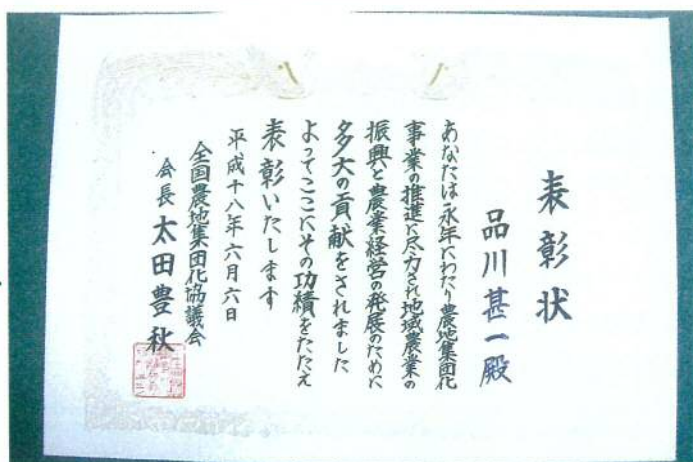 表彰状
品川甚一殿
あなたは永年にわたり農地集団化
事業の推進に尽力され地域農業の
振興と農業経営の発展のために
多大の貢献をされました
よってここにその功績をたたえ
表彰いたします
平成十八年六月六日
全国農地集団化協議会
会長 太田豊秋